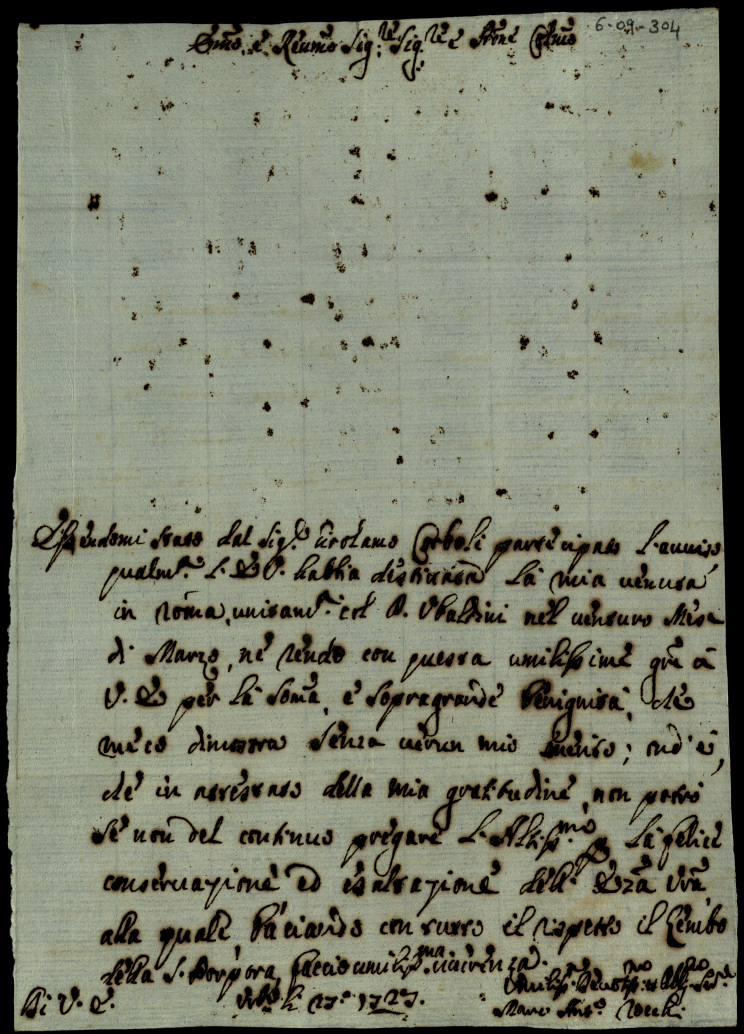 6-09-304
Em̃o, e Reum̃o Sig:re Sig.re e Prõne Colm̃o
Essendomi stato dal Sig.r Girolamo Carboli partecipato l'auuiso
qualm.te l'E. V. habbia destinata la mia uenuta
in Roma unitam.te col P. Vbaldini nel uenturo Mese
di Marzo, ne rendo con questa umilissime grẽ à
V. E. per la som̃a, e sopragrande benignità, che
meco dimostra senza uerun mio merito; ond'è,
che in attestato della mia gratitudine, non potrò
se non del continuo pregare l'Altiss.mo per la felice
conseruazione ed esaltazione dell' Em̃za Vr̃a
alla quale baciando con tutto il rispetto il Lembo
della S. Porpora faccio umiliss.ma riuerenza.
Di V. E. 1727.
Marc' Ant.o